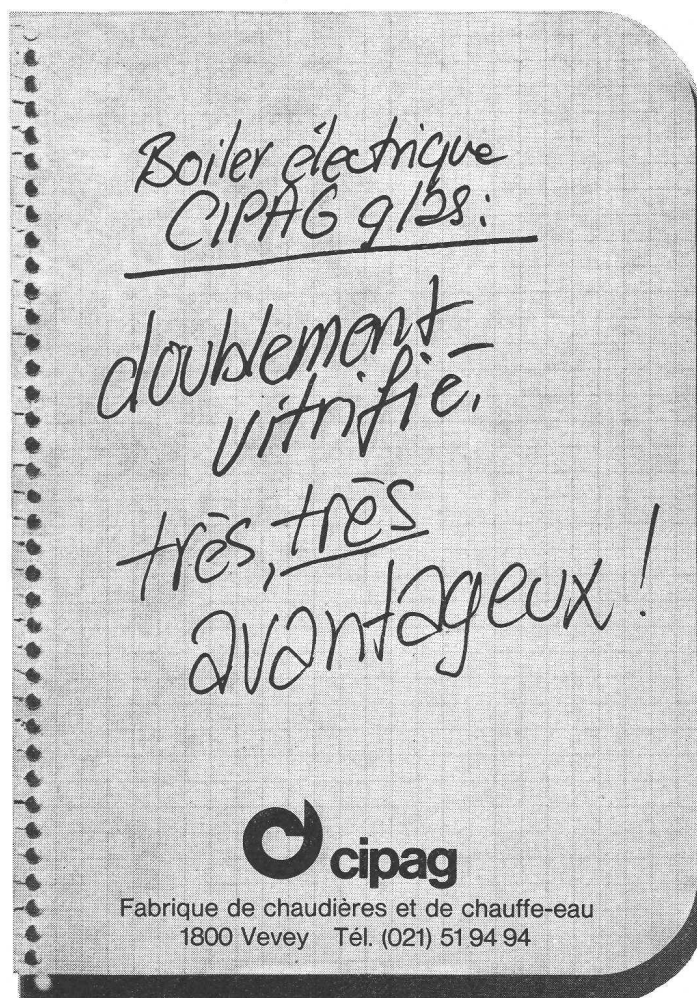 Boiler électrique
CIPAG glas:
doublement
vitrifié,
très, très
avantageux!
cipag
Fabrique de chaudières et de chauffe-eau
1800 Vevey Tél. (021) 51 94 94